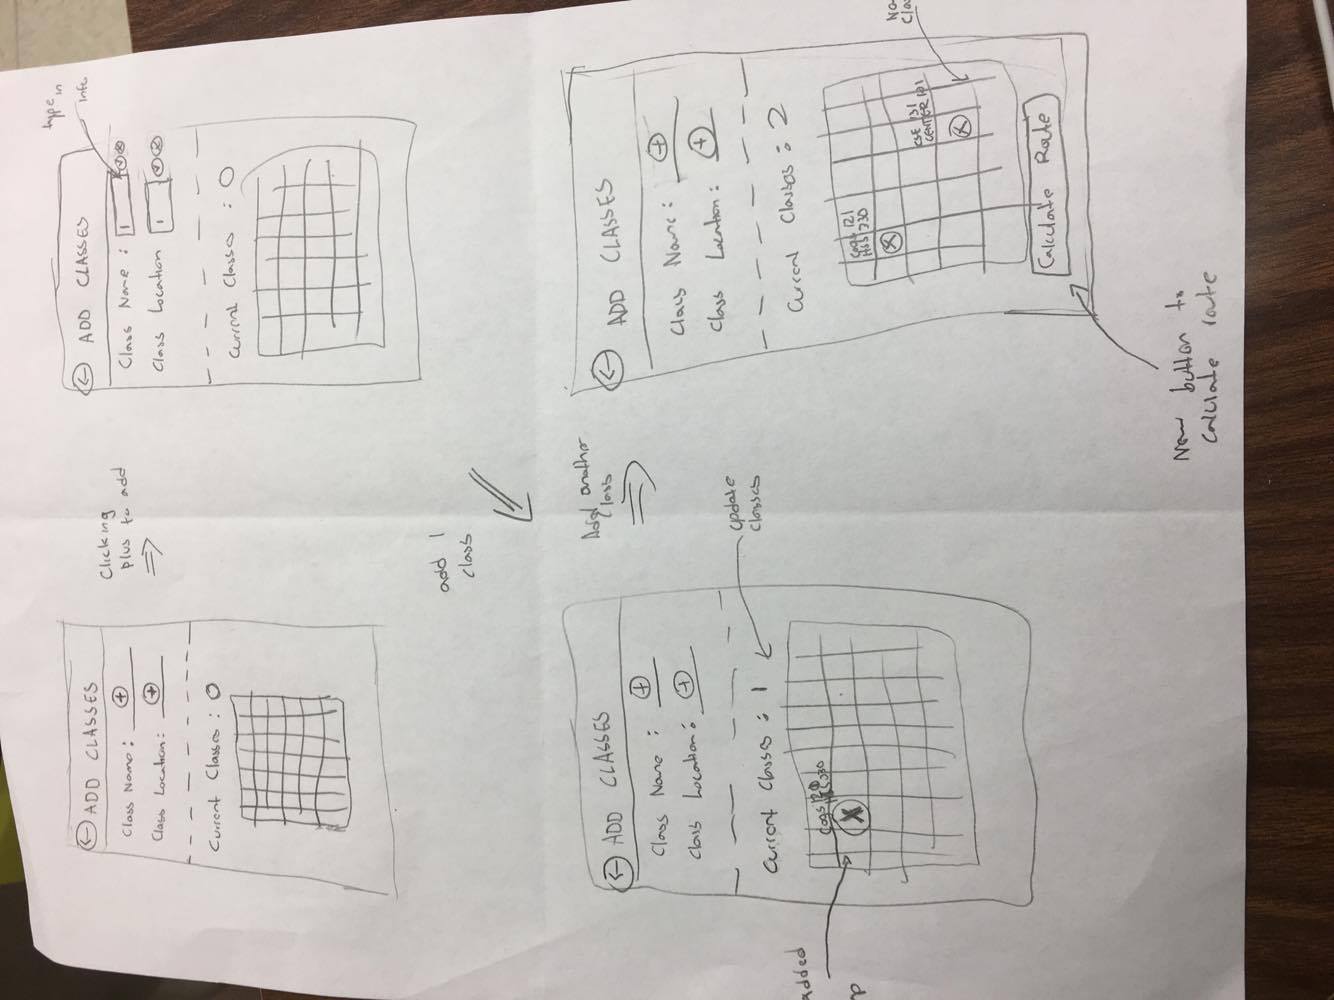 ← ADD CLASSES
Class Name: +
Class Location: +
Current Classes: 0
Clicking
plus to add
⇒
← ADD CLASSES
Class Name:
Class Location
Current Classes: 0
type in
info
add 1
class
← ADD CLASSES
Class Name: +
Class Location: +
Current Classes: 1
Cogs
X
added
update
classes
Add another
class
⇒
← ADD CLASSES
Class Name: +
Class Location: +
Current Classes: 2
Cogs 121
HSS 1330
X
CSE 131
CENTER 101
X
Calculate Route
New button to
calculate route